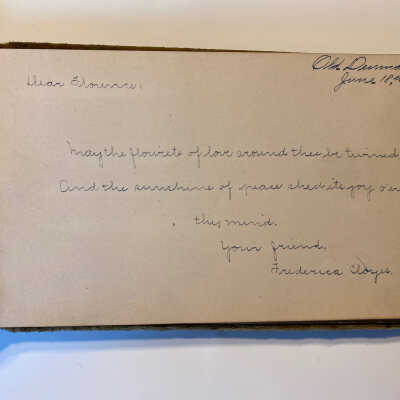 Old
June 18,
Dear Florence,
May the flowrets of love around thee be twined,
And the sunshine of peace shed its joy o'er
thy mind.
Your friend,
Frederica